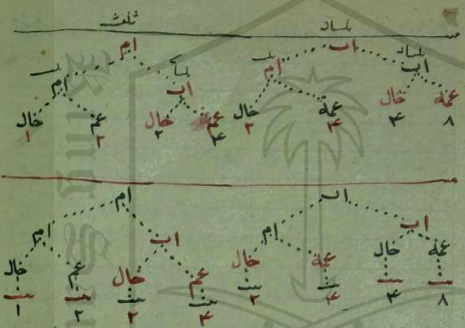 ثلثان ثلث
اب ام
ثلثان اب ثلث ام ثلثان اب ثلث ام
عمة خال عمة خال عم خال عم خال
٨ ٤ ٤ ٢ ٤ ٢ ٢ ١
اب ام
اب ام اب ام
عمة خال عمة خال عم خال عم خال
٨ ٤ ٤ ٢ ٤ ٢ ٢ ١